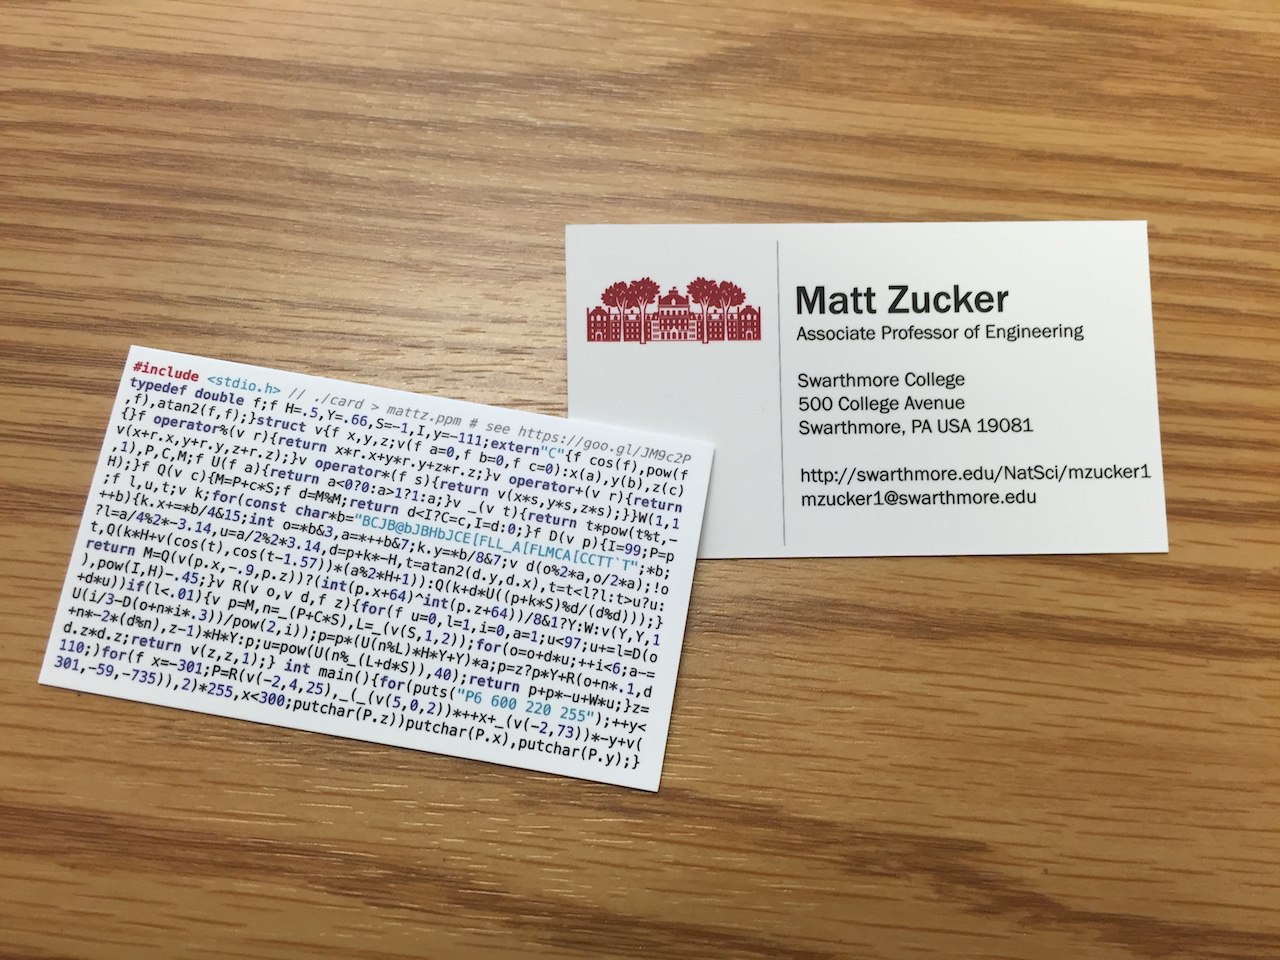 #include <stdio.h> // ./card > mattz.ppm # see https://goo.gl/JM9c2P
typedef double f;f H=.5,Y=.66,S=-1,I,y=-111;extern"C"{f cos(f),pow(f
,f),atan2(f,f);}struct v{f x,y,z;v(f a=0,f b=0,f c=0):x(a),y(b),z(c)
{}f operator%(v r){return x*r.x+y*r.y+z*r.z;}v operator+(v r){return
v(x+r.x,y+r.y,z+r.z);}v operator*(f s){return v(x*s,y*s,z*s);}}W(1,1
,1),P,C,M;f U(f a){return a<0?0:a>1?1:a;}v _(v t){return t*pow(t%t,-
H);}f Q(v c){M=P+c*S;f d=M%M;return d<I?C=c,I=d:0;}f D(v p){I=99;P=p
;f l,u,t;v k;for(const char*b="BCJB@bJBHbJCE[FLL_A[FLMCA[CCTT`T";*b;
++b){k.x+=*b/4&15;int o=*b&3,a=*++b&7;k.y=*b/8&7;v d(o%2*a,o/2*a);!o
?l=a/4%2*-3.14,u=a/2%2*3.14,d=p+k*-H,t=atan2(d.y,d.x),t=t<l?l:t>u?u:
t,Q(k*H+v(cos(t),cos(t-1.57))*(a%2*H+1)):Q(k+d*U((p+k*S)%d/(d%d)));}
return M=Q(v(p.x,-.9,p.z))?(int(p.x+64)^int(p.z+64))/8&1?Y:W:v(Y,Y,1
),pow(I,H)-.45;}v R(v o,v d,f z){for(f u=0,l=1,i=0,a=1;u<97;u+=l=D(o
+d*u))if(l<.01){v p=M,n=_(P+C*S),L=_(v(S,1,2));for(o=o+d*u;++i<6;a-=
U(i/3-D(o+n*i*.3))/pow(2,i));p=p*(U(n%L)*H*Y+Y)*a;p=z?p*Y+R(o+n*.1,d
+n*-2*(d%n),z-1)*H*Y:p;u=pow(U(n%_(L+d*S)),40);return p+p*-u+W*u;}z=
d.z*d.z;return v(z,z,1);} int main(){for(puts("P6 600 220 255");++y<
110;)for(f x=-301;P=R(v(-2,4,25),_(_(v(5,0,2))*++x+_(v(-2,73))*-y+v(
301,-59,-735)),2)*255,x<300;putchar(P.z))putchar(P.x),putchar(P.y);}
Matt Zucker
Associate Professor of Engineering
Swarthmore College
500 College Avenue
Swarthmore, PA USA 19081
http://swarthmore.edu/NatSci/mzucker1
mzucker1@swarthmore.edu